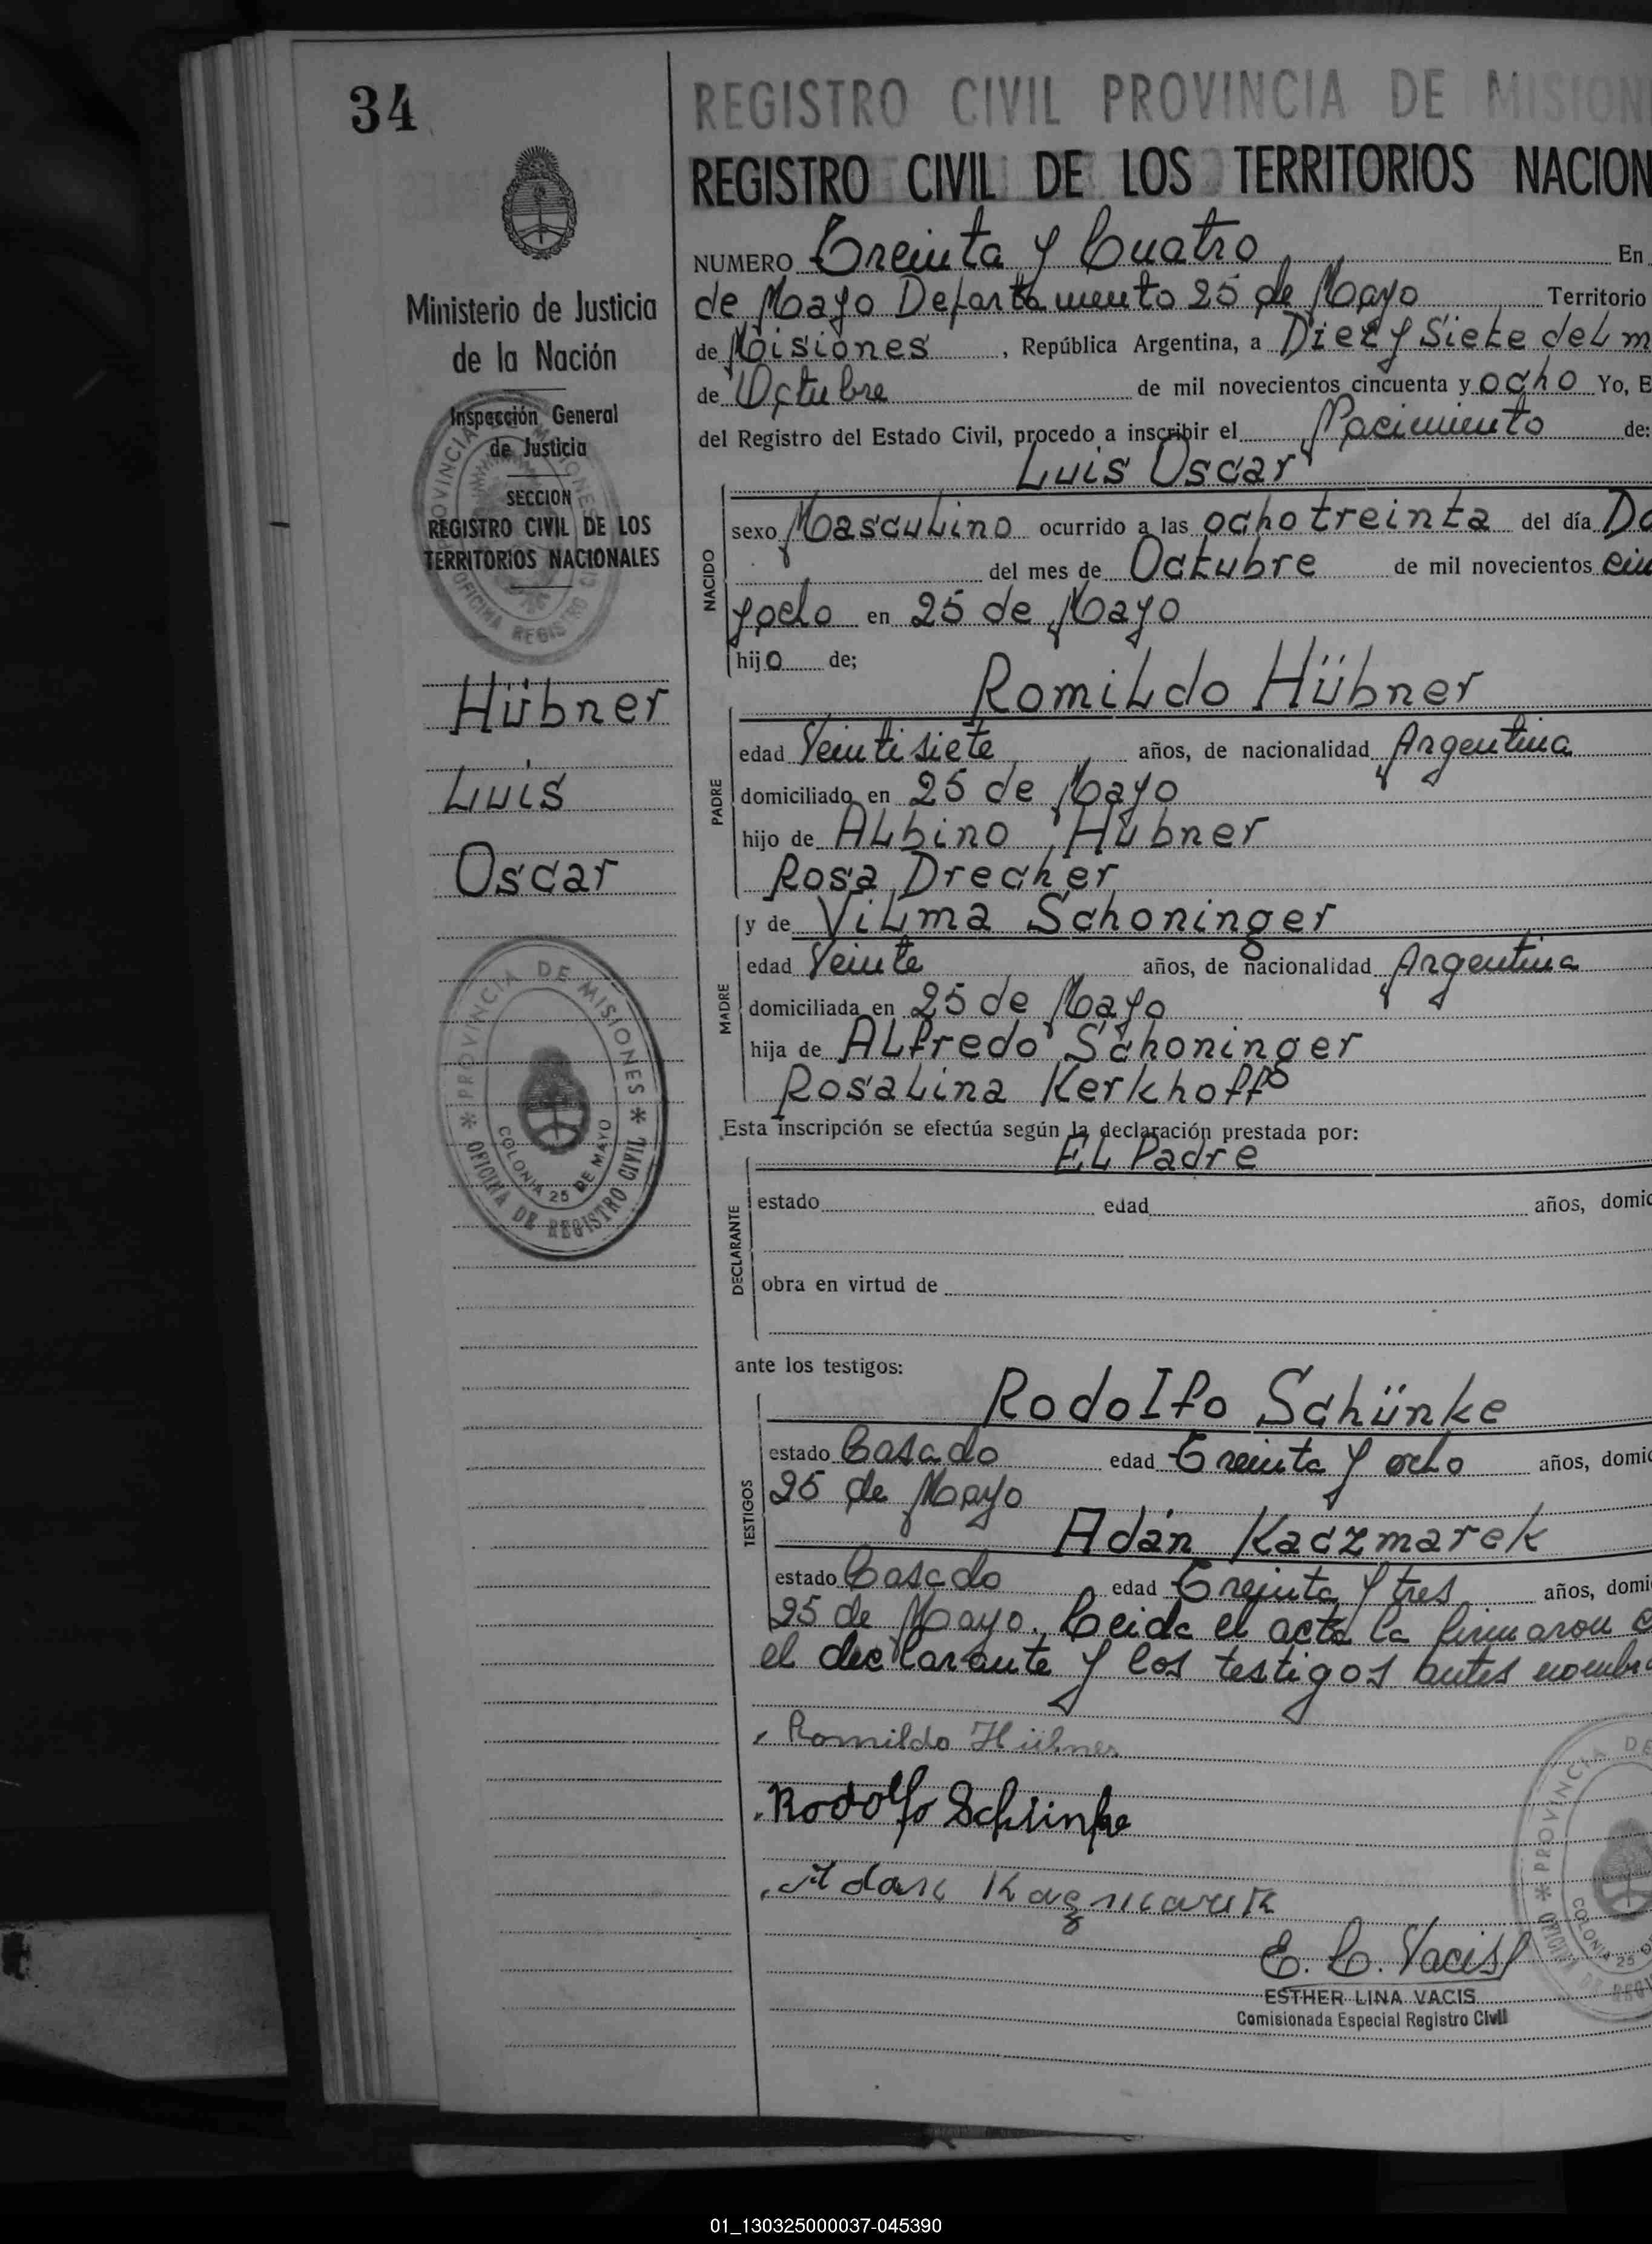 34
REGISTRO CIVIL PROVINCIA DE MISION
REGISTRO CIVIL DE LOS TERRITORIOS NACION
Ministerio de Justicia
de la Nación
Inspección General
de Justicia
SECCION
REGISTRO CIVIL DE LOS
TERRITORIOS NACIONALES
PROVINCIA MISIONES
OFICINA REGIS
Hübner
Luis
Oscar
PROVINCIA DE MISIONES
COLONIA 25 DE MAYO
OFICINA DE REGISTRO CIVIL
NUMERO Treinta y Cuatro En
de Mayo Departamento 25 de Mayo Territorio
de Misiones, República Argentina, a Diez y Siete del m
de Octubre de mil novecientos cincuenta y ocho Yo, E
del Registro del Estado Civil, procedo a inscribir el Nacimiento de:
Luis Oscar
NACIDO
sexo Masculino ocurrido a las ocho treinta del día Do
del mes de Octubre de mil novecientos cin
y ocho en 25 de Mayo
hijo de;
Romildo Hübner
PADRE
edad Veintisiete años, de nacionalidad Argentina
domiciliado en 25 de Mayo
hijo de Albino Hübner
Rosa Drecher
y de Vilma Schoninger
MADRE
edad Veinte años, de nacionalidad Argentina
domiciliada en 25 de Mayo
hija de Alfredo Schoninger
Rosalina Kerkhoff
Esta inscripción se efectúa según la declaración prestada por:
El Padre
DECLARANTE
estado edad años, domic
obra en virtud de
ante los testigos:
Rodolfo Schünke
TESTIGOS
estado Casado edad Treinta y ocho años, domic
25 de Mayo
Adán Kaczmarek
estado Casado edad Treinta y tres años, domi
25 de Mayo. Leida el acta la firmaron c
el declarante y los testigos antes nombra
Romildo Hübner
Rodolfo Schünke
Adan Kaczmarek
E. L. Vacis
ESTHER LINA VACIS
Comisionada Especial Registro Civil
PROVINCIA DE
COLONIA 25
OFICINA
REGI
01_130325000037-045390